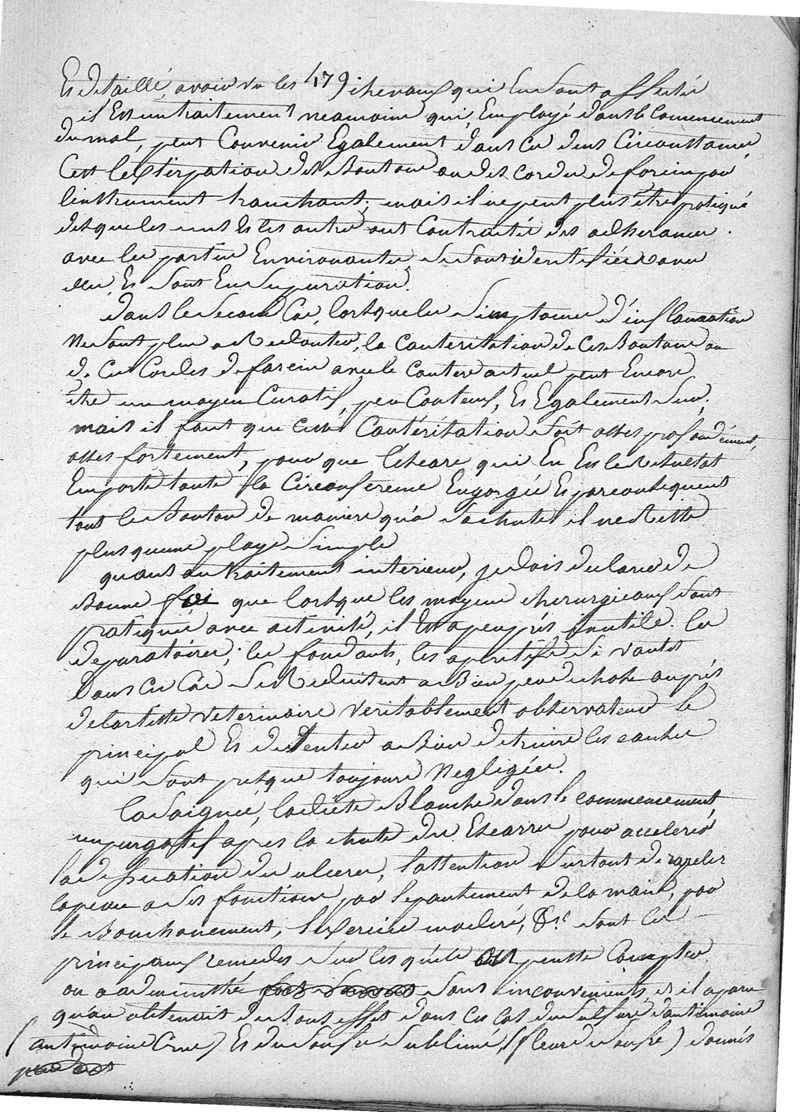 Es detaillé, avoir vu les 179 chevaux qui En sont affectés
il Est un traitement neamoins qui, Employé dans le Commencement
du mal, peut Convenir Egalement dans Ces deux Circonstances,
C'est l'extirpation des Boutons ou des cordes de farcin par
l'instrument tranchant; mais il ne peut plus être pratiqué
dès que les uns Es les autres ont Contracté des adherances
avec les parties Environantes, se sont identifiées avec
elles, Es sont En supuration.
dans le second Cas, lorsque les simptomes d'inflamation
ne sont plus a Redouter, la Cautéritation de Ces Boutons ou
de Ces Cordes de farcin avec le Cautere actuel peut Encore
être un moyen Curatif, peu Couteux, Es Egalement sur,
mais il faut que cette Cautéritation soit asses profondément,
asses fortement, pour que l'escare qui En Est le Resultat
Emporte toute la Circonference Engorgée Es par consequent
tout le Bouton de maniere qu'a sa chute il ne Reste
plus qu'une playe simple
quant au traitement interieur, je dois declarer de
Bonne foi que lorsque les moyens chirurgicaux sont
pratiqués avec activité, il Est apeuprés inutile. les
depuratoires, les fondants, les aperitifs si vantés
dans Ces Cas se Reduisent a Bien peu de chose auprés
de l'artiste veterinaire veritablement observateur le
principal Es de tenter a Bien detruire les causes
qui sont presque toujours Negligées.
la saignée, la diéte Blanche dans le commencement
un purgatif après la chute des Escarres pour accelerer
la dessication des ulceres, l'attention surtout de rapeler
la peau a ses fonctions par le pansement de la main, par
le Bouchonement, l'exercice moderé, &c sont les
principaux remedes sur les quels on puisse Compter
on a administré sans inconvenients, et il a paru
qu'on obtenoit de bons effet dans ces cas du sulfure d'antimoine
(antimoine Crue) Es du soufre sublimé (fleur de soufre) donnés